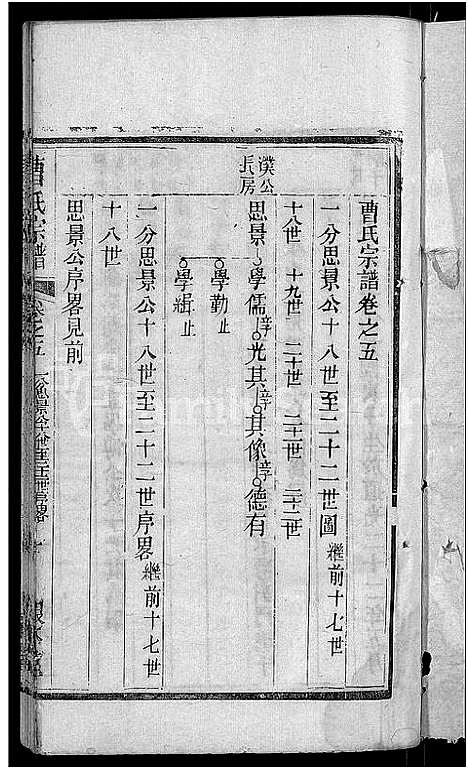 曹氏宗譜卷之五
一分思景公十八世至二十二世圖 繼前十七世
十八世 十九世 二十世 二十一世 二十二世
濮公
長房
思景 學儒 停 光其 停 其像 停 德有
學勤 止
學緝 止
一分思景公十八世至二十二世序畧 繼前十七世
十八世
思景公序畧見前
曹氏宗譜 卷之五